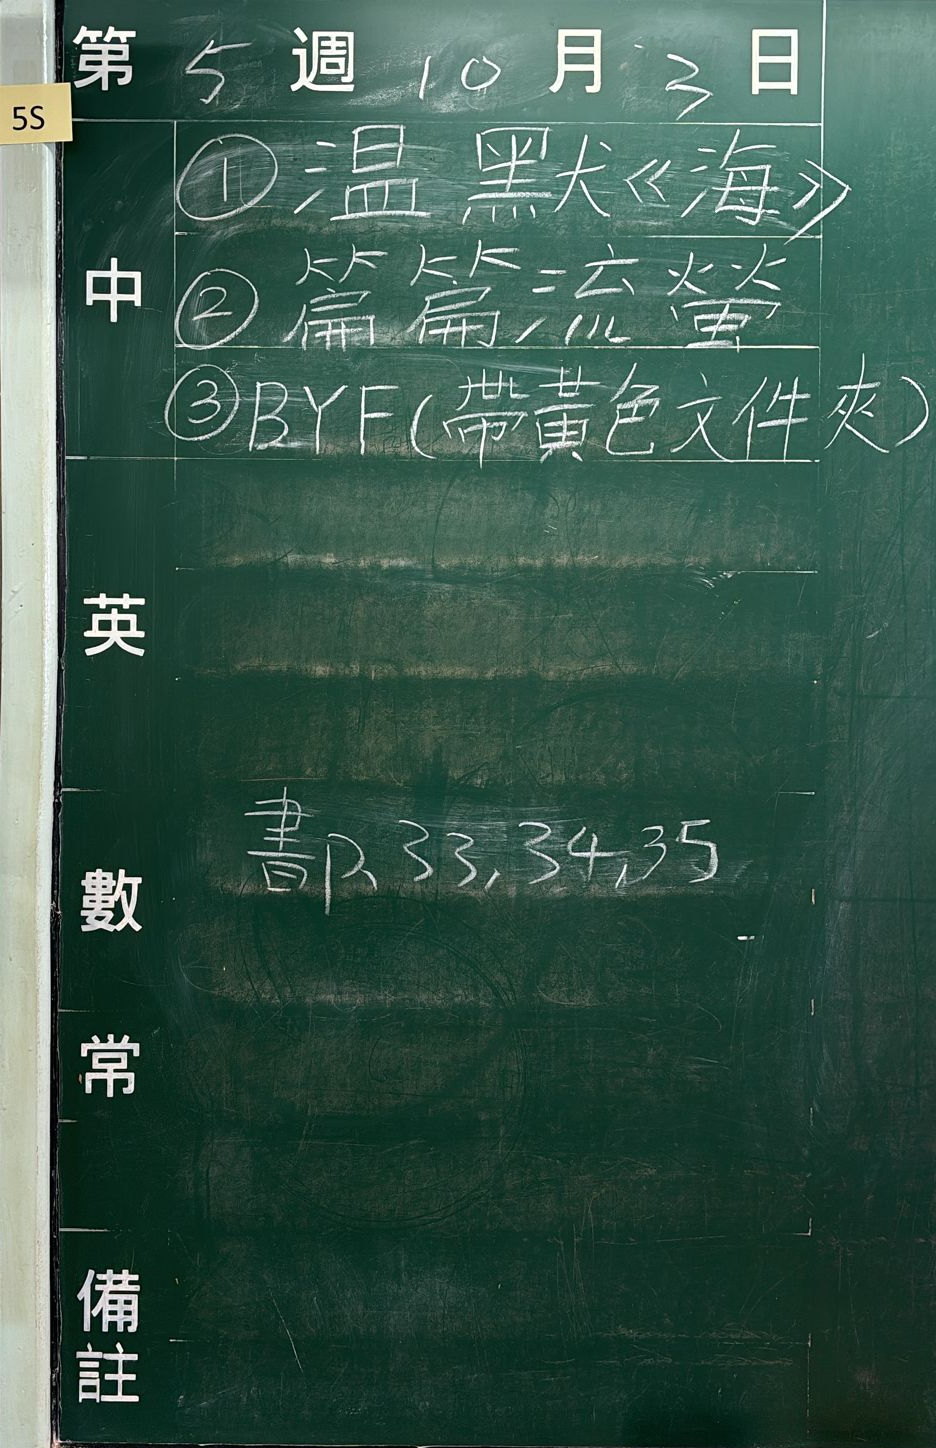 第 5 週 10 月 3 日
5S
中
① 温 默犬《海》
② 篇篇流螢
③ BYF(帶黃色文件夾)
英
數
書P. 33, 34, 35
常
備註